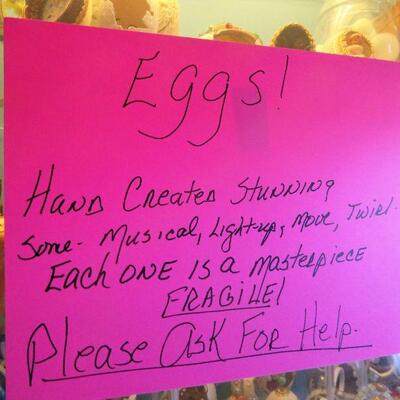 Eggs!
Hand Created Stunning
Some- Musical, Light-up, Move, Twirl.
Each one is a masterpiece
FRAGILE!
Please Ask For Help.